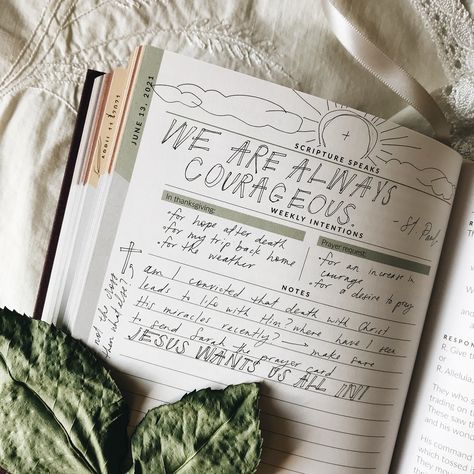 JUNE 13, 2021
APRIL 11, 2021
SCRIPTURE SPEAKS
WE ARE ALWAYS
COURAGEOUS.
- St. Paul
WEEKLY INTENTIONS
In thanksgiving:
· for hope after death
· for my trip back home
· for the weather
Prayer request:
· for an increase in
courage
· for a desire to pray
NOTES
am I convicted that death with Christ
leads to life with Him? where have I seen
His miracles recently? → make sure
to send Sarah the prayer card
JESUS WANTS US ALL IN!
not the cross,
then what else?
RESPON
R. Give t
or
R. Alleluia,
They who s
trading on
These saw t
and his won
His comman
which tosse
They moun